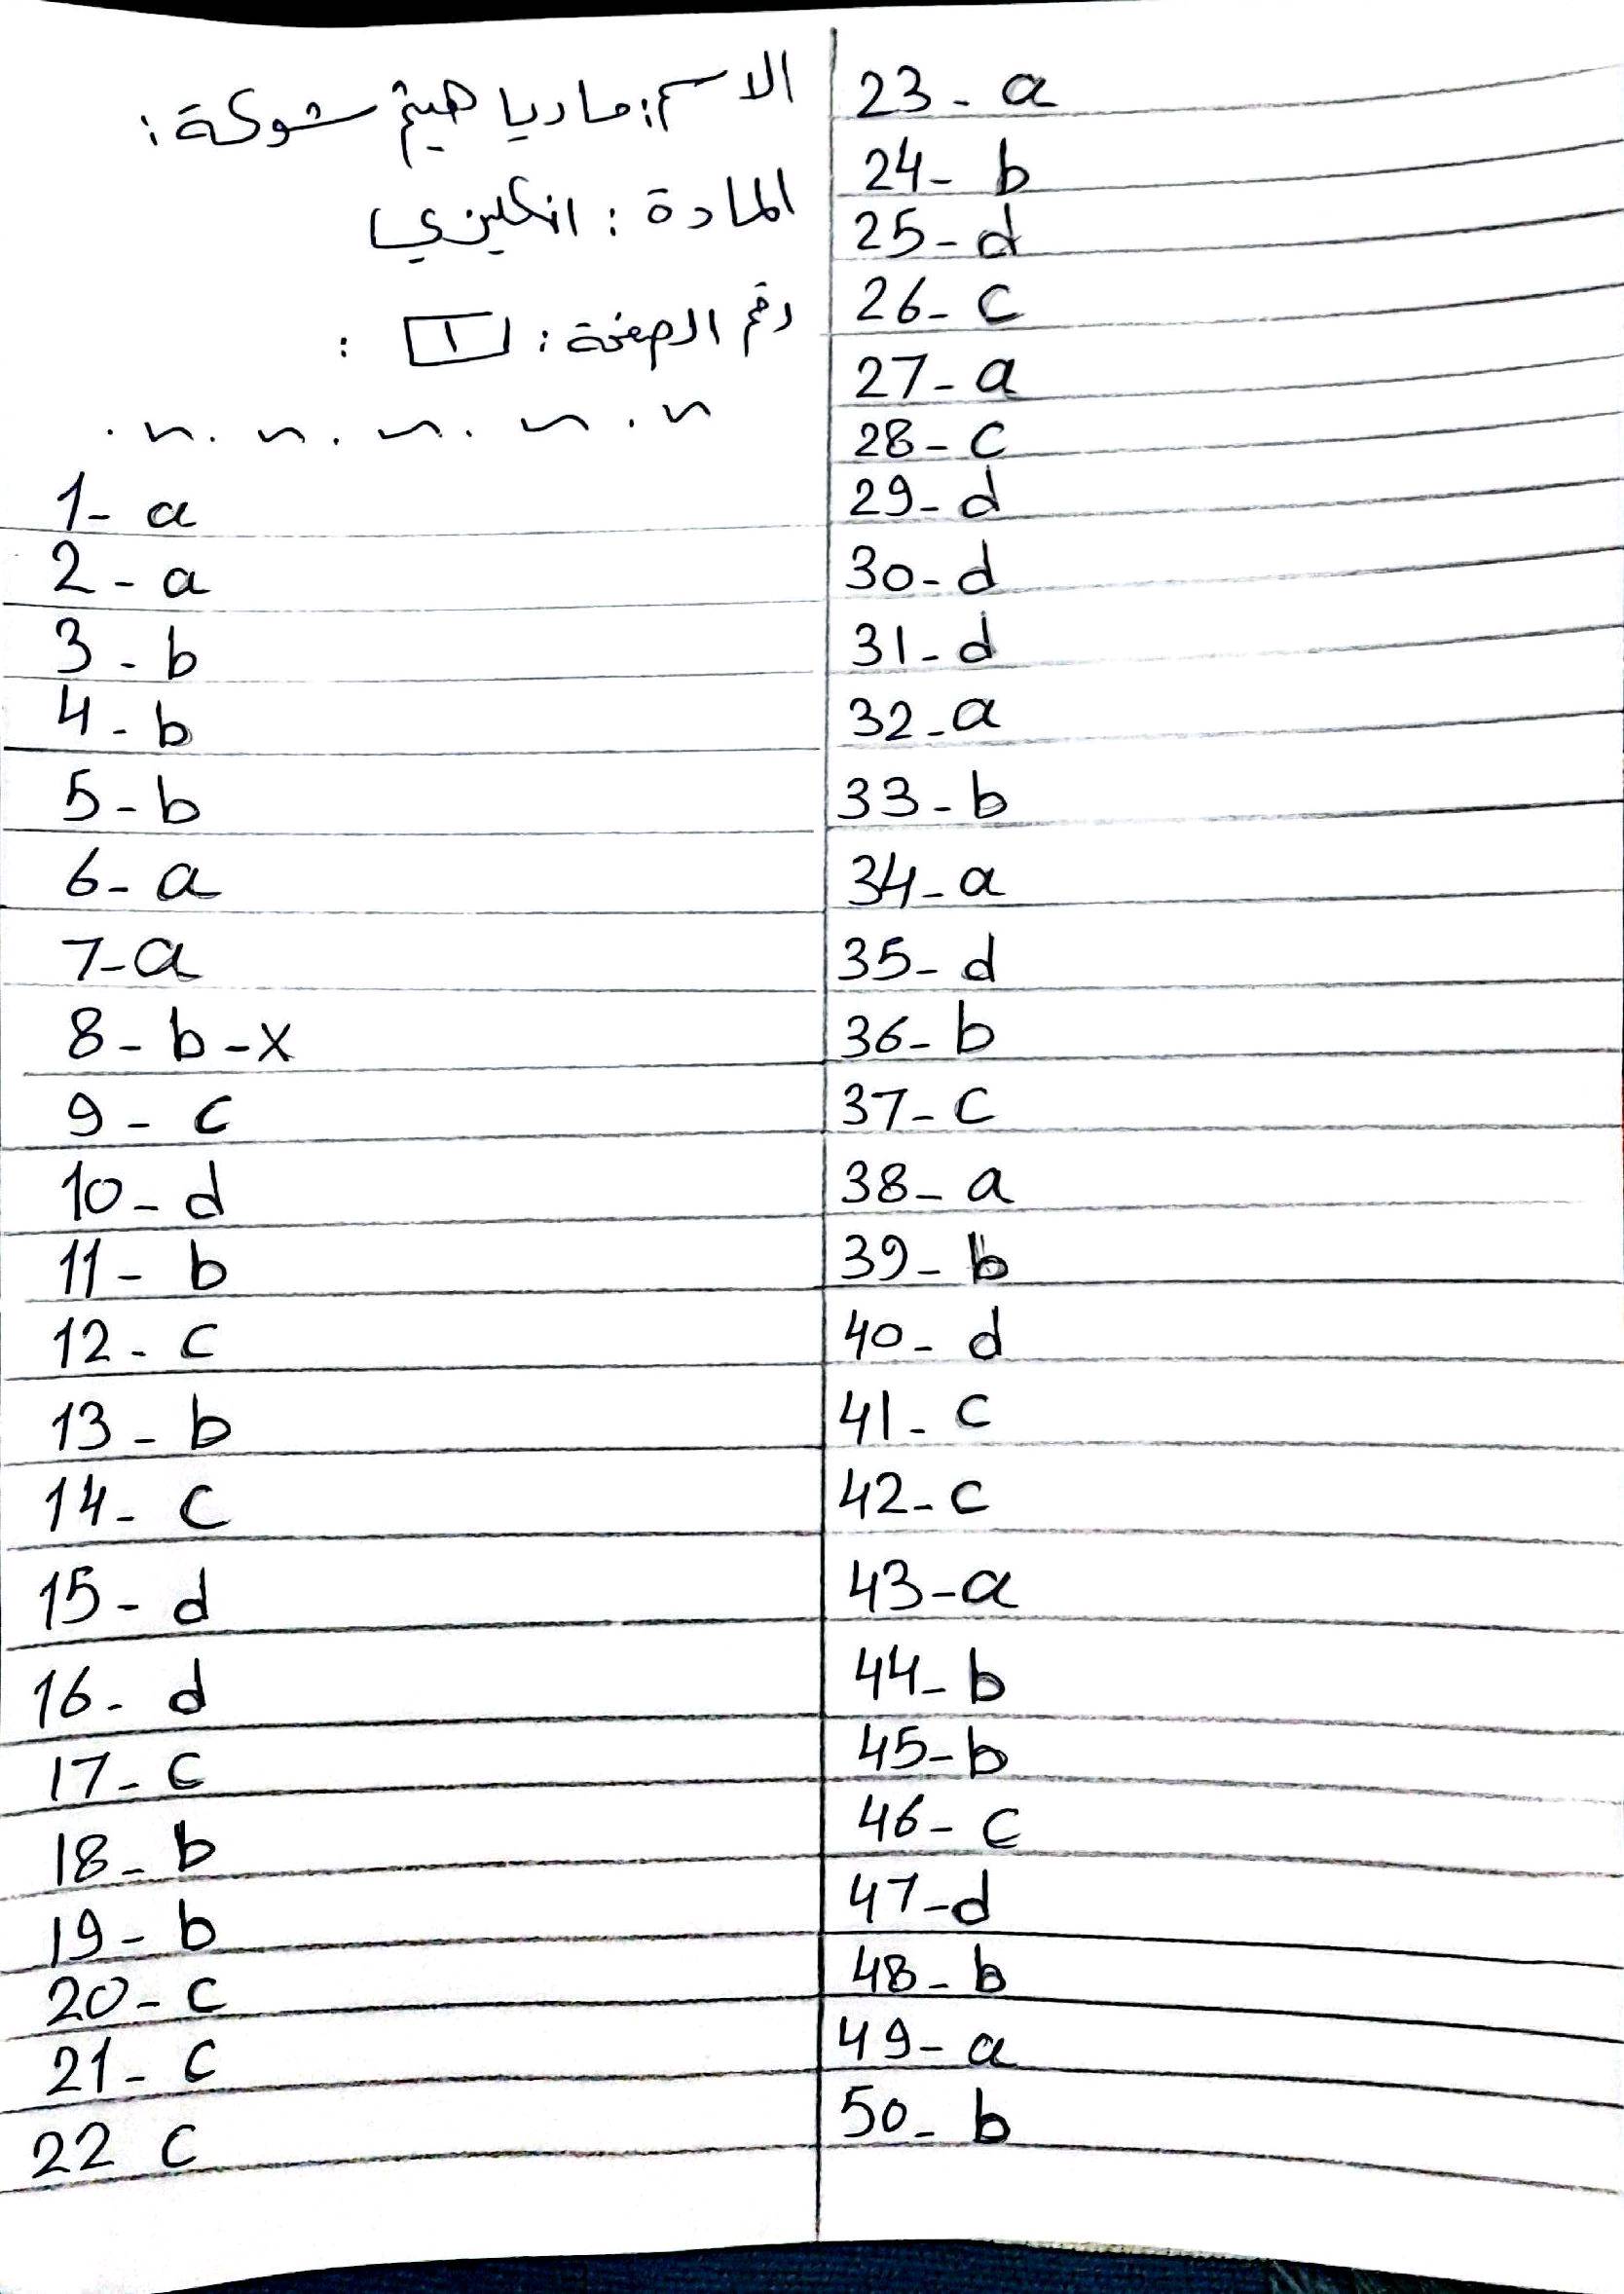 الاسم: ماريا هيثم شوكة:
المادة: انكليزي
رقم الصفحة: 1 :
1- a
2- a
3- b
4- b
5- b
6- a
7- a
8- b - x
9- c
10- d
11- b
12- c
13- b
14- c
15- d
16- d
17- c
18- b
19- b
20- c
21- c
22 c
23- a
24- b
25- d
26- c
27- a
28- c
29- d
30- d
31- d
32- a
33- b
34- a
35- d
36- b
37- c
38- a
39- b
40- d
41- c
42- c
43- a
44- b
45- b
46- c
47- d
48- b
49- a
50- b